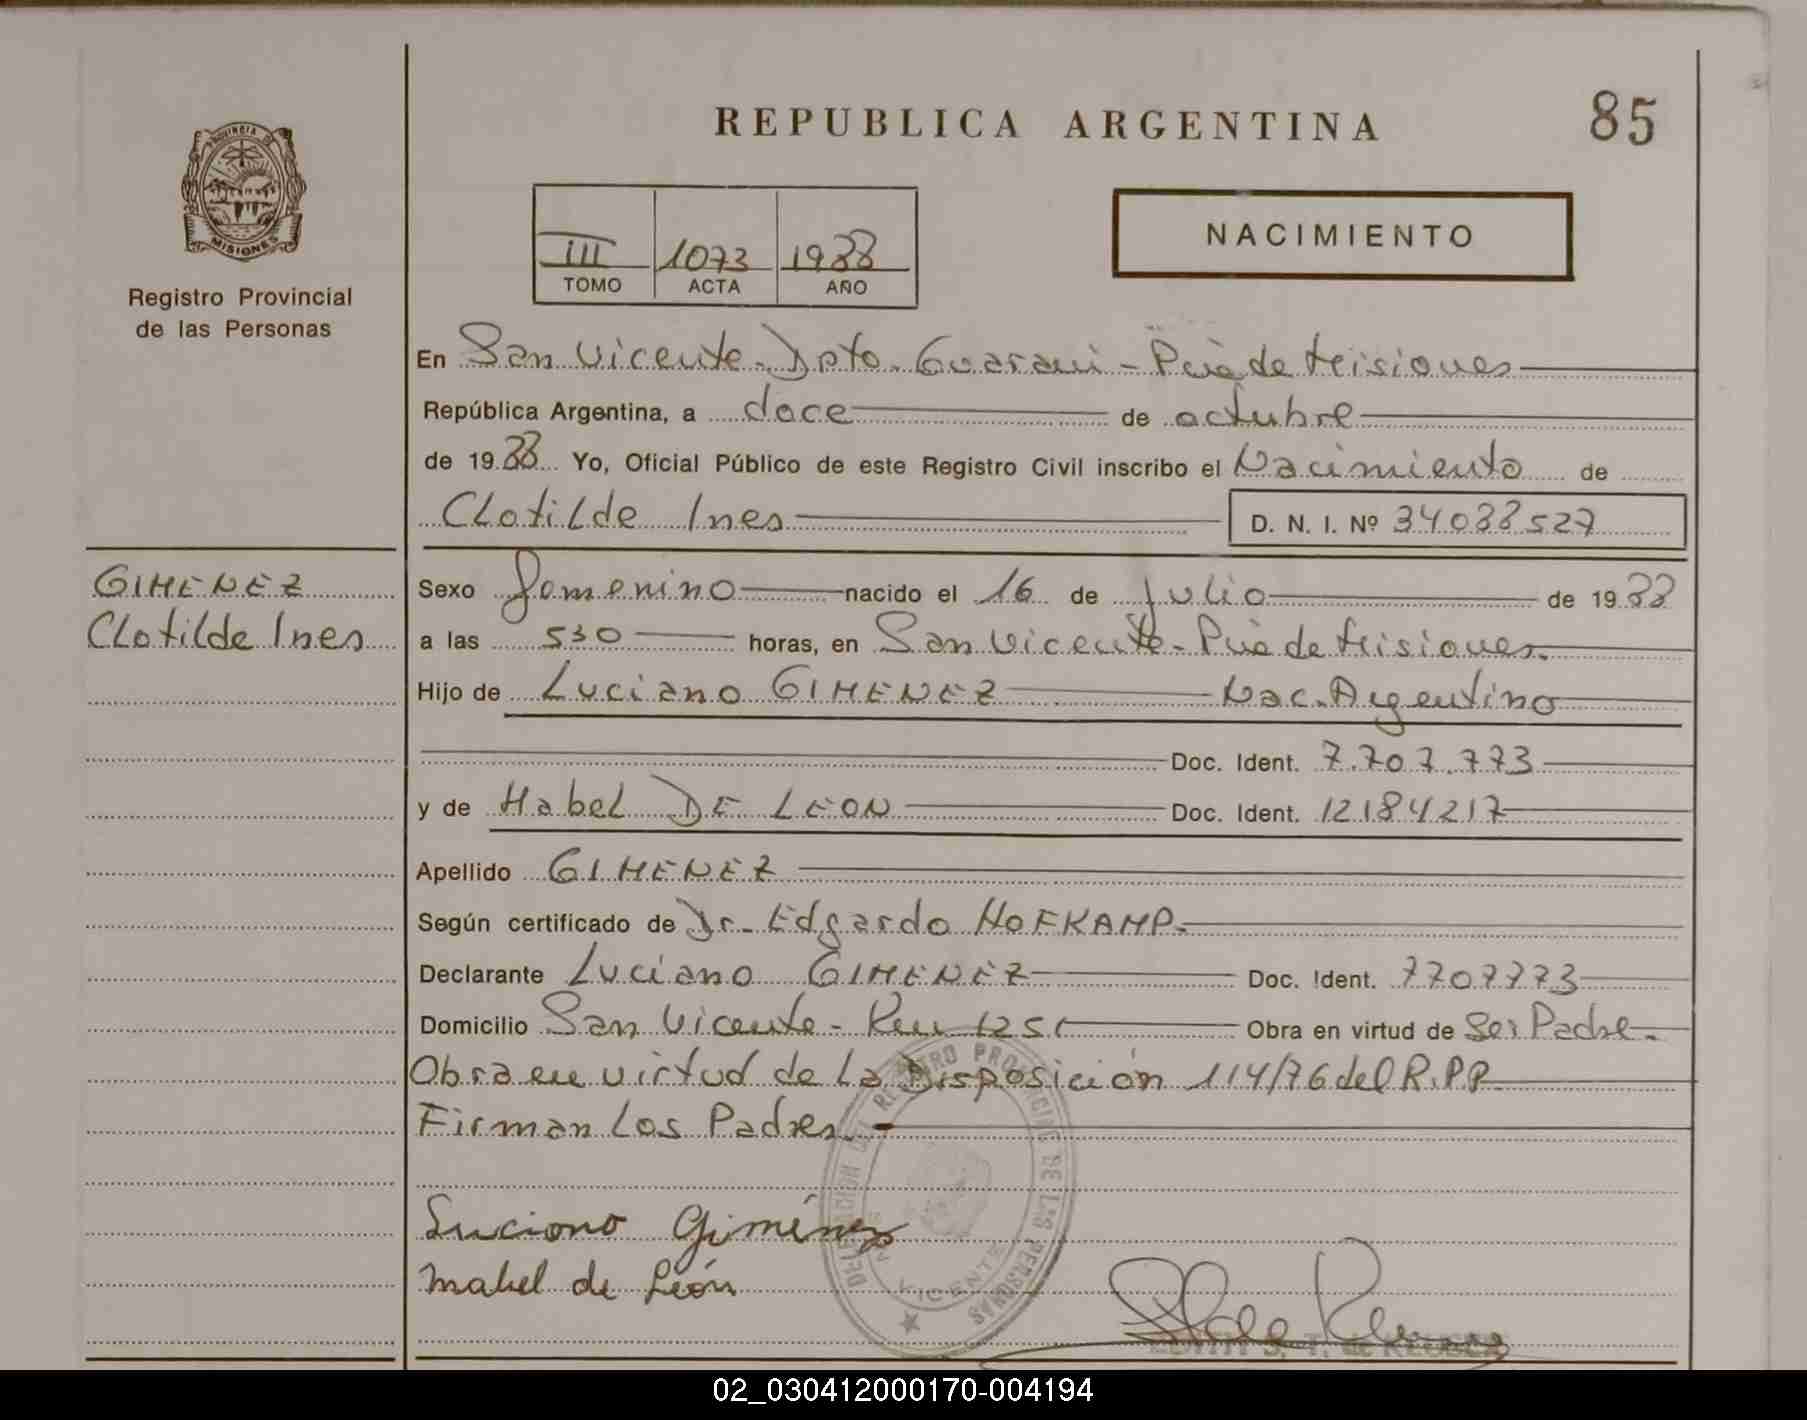 REPUBLICA ARGENTINA
85
PROVINCIA DE
MISIONES
Registro Provincial
de las Personas
III 1073 1988
TOMO ACTA AÑO
NACIMIENTO
En San Vicente-Dpto. Guarani-Pcia de Misiones
República Argentina, a doce de octubre
de 1988 Yo, Oficial Público de este Registro Civil inscribo el Nacimiento de
Clotilde Ines D. N. I. Nº 34088527
GIMENEZ
Clotilde Ines
Sexo femenino nacido el 16 de julio de 1988
a las 530 horas, en San Vicente-Pcia de Misiones.
Hijo de Luciano GIMENEZ Nac. Argentino
Doc. Ident. 7.707.773
y de Mabel DE LEON Doc. Ident. 12184217
Apellido GIMENEZ
Según certificado de Dr. Edgardo HOFKAMP.
Declarante Luciano GIMENEZ Doc. Ident. 7707773
Domicilio San Vicente- Obra en virtud de Ser Padre.
Obra en virtud de La Disposición 114/76 del R.P.P.
Firman Los Padres.
Luciano Giménez
Mabel de León
DELEGACION DEL REGISTRO PROVINCIAL DE LAS PERSONAS
VICENTE
EDITH S. T. de
02_030412000170-004194